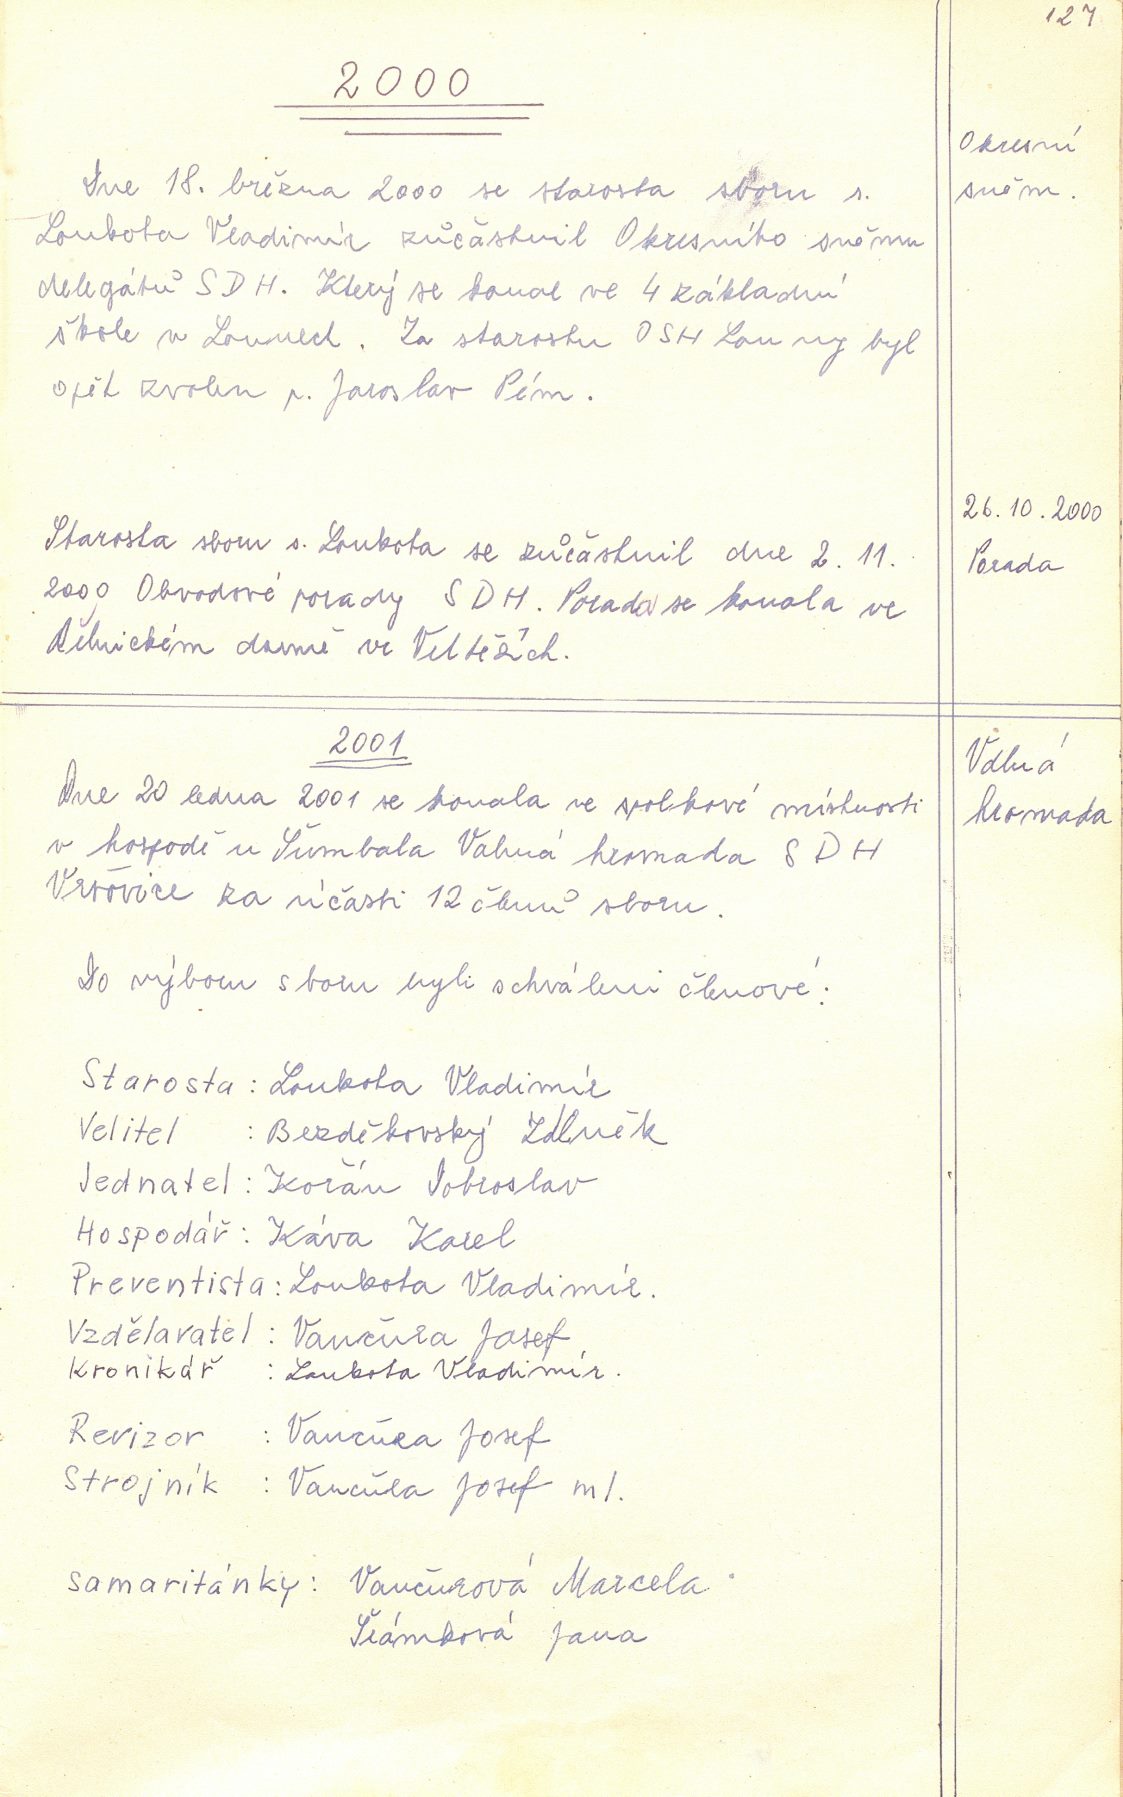 127
2000
Okresní
sněm.
Dne 18. března 2000 se starosta sboru s.
Loukota Vladimír zůčástnil Okresního sněmu
delegátů SDH. Který se konal ve 4 základní
škole v Lounech. Za starostu OSH Louny byl
opět zvolen p. Jaroslav Pém.
26.10.2000
Porada
Starosta sboru s. Loukota se zůčástnil dne 2.11.
2000 Obvodové porady SDH. Porada se konala ve
dělnickém domě ve Veltěžích.
2001
Valná
hromada
Dne 20 ledna 2001 se konala ve spolkové místnosti
v hospodě u Šumbala Valná hromada SDH
Vršovice za účasti 12 členů sboru.
Do výboru sboru byli schváleni členové:
Starosta: Loukota Vladimír
Velitel : Bezděkovský Zdeněk
Jednatel: Kořán Dobroslav
Hospodář: Káva Karel
Preventista: Loukota Vladimír.
Vzdělavatel: Vančura Josef
Kronikář : Loukota Vladimír.
Revizor : Vančura Josef
Strojník : Vančura Josef ml.
samaritánky: Vančurová Marcela
Šrámková Jana